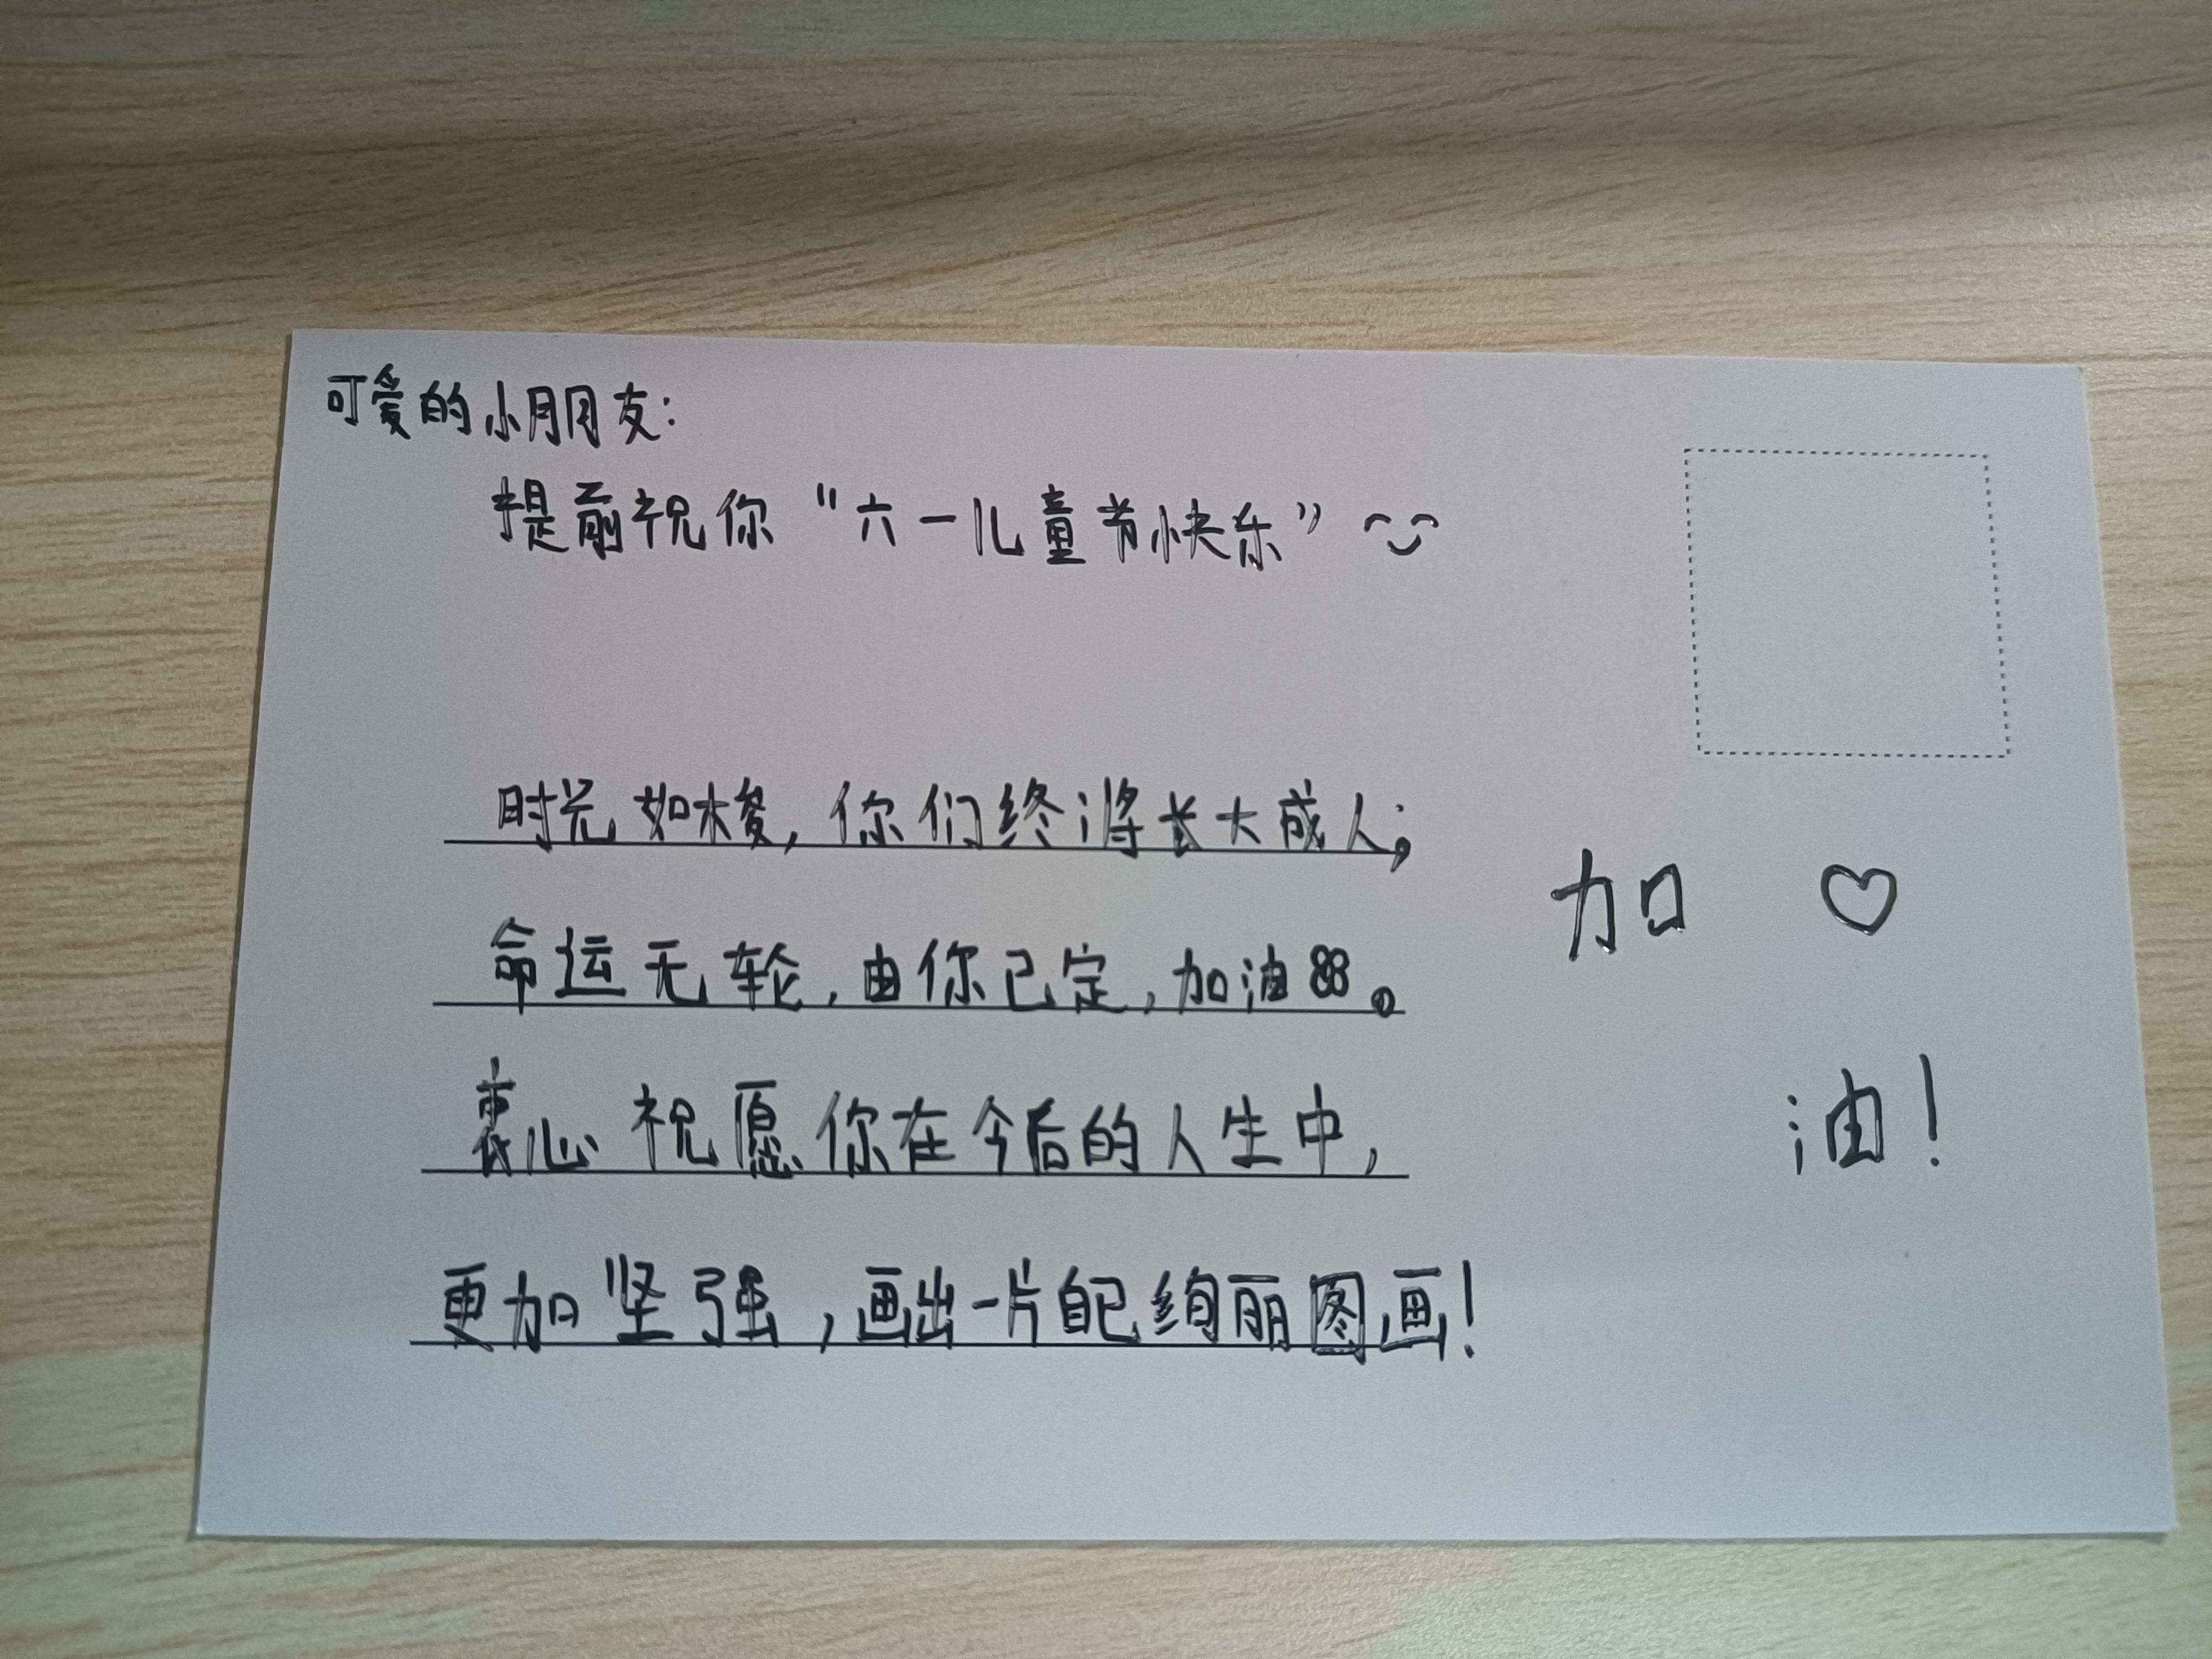 可爱的小朋友：
提前祝你“六一儿童节快乐”
时光如梭，你们终将长大成人；
命运无轮，由你已定，加油。
衷心祝愿你在今后的人生中，
更加坚强，画出一片自已绚丽图画！
加
油！